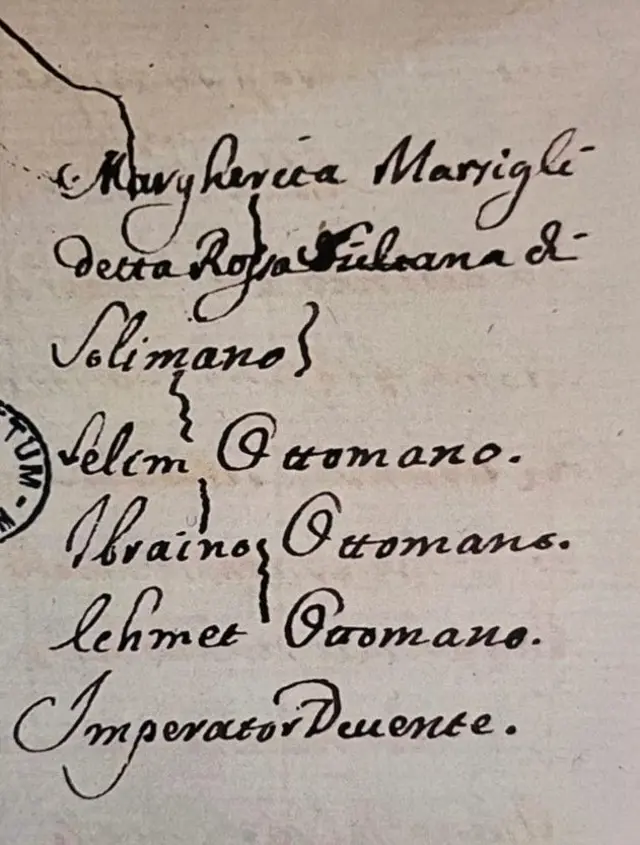 Margherita Marsigli
detta Rossa Sultana di
Solimano
Selim Ottomano.
Ibraino Ottomano.
Ackmet Ottomano.
Imperator Vivente.
TUM